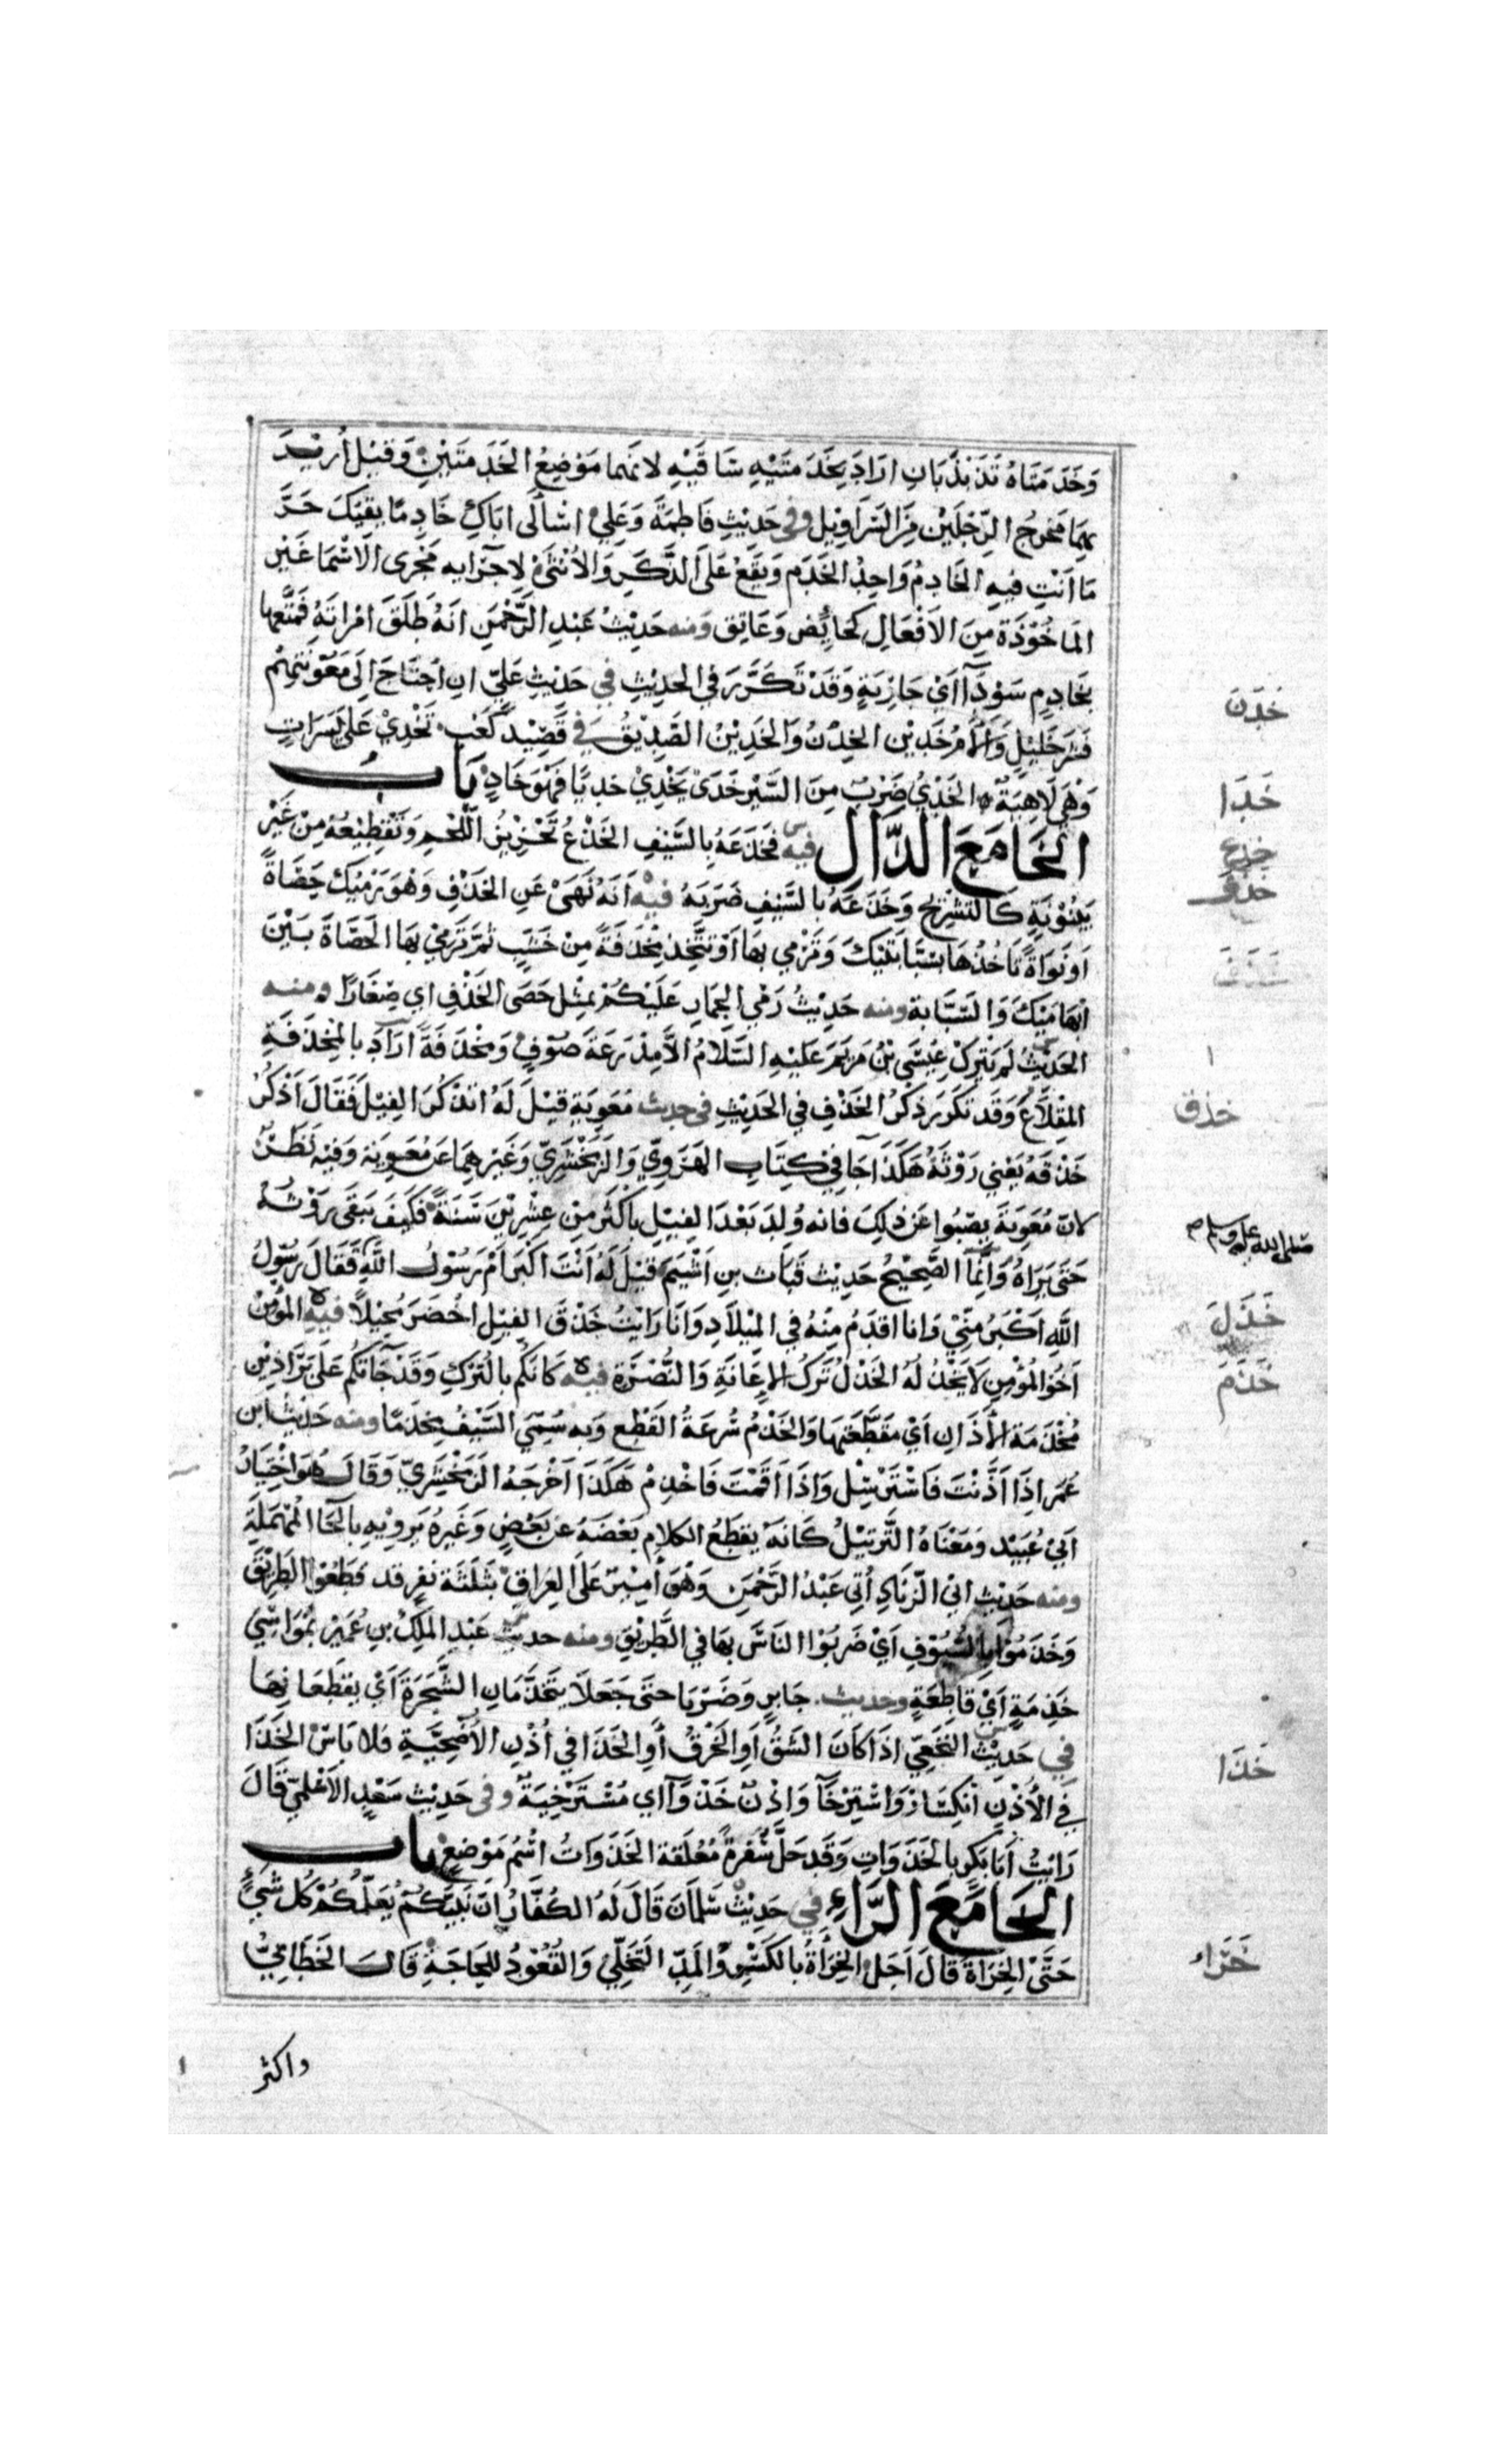 وَخَدَمَتَاهُ تَذَبْذَبَانِ ارَادَ بِخَدَمَتَيْهِ سَاقَيْهِ لانهما مَوْضِعُ الخَدَمتَيْنِ وَقيْل اُرِيْدَ
بِهِمَا مَخرجُ الرِّجلَيْنِ مِنَ السَّرَاوِيْل وفى حَدِيْثِ فَاطِمَةَ وَعَلِيْ اسْألى اباكِ خَادِمًا يقيْكَ حَرَّ
مَا اَنْتِ فيهِ الخَادِمُ وَاحِدُ الخَدَم وَيَقَعُ عَلَى الذَّكَرِ وَالاُنْثَى لِاجْرَايِهِ مَجْرى الَاسْمَا غَيْرِ
المَاخُوْذَة مِنَ الاَفْعَالِ كَحَايِض وَعَاتِق وَمنه حَدِيْثُ عَبْدِ الرَّحْمٰنِ انَهُ طَلَّقَ امْرَاتَهُ فَمَتَّعَهَا
بخَادِمٍ سَوْدَآ اَىْ جَارِيَةٍ وَقَدْ تَكَرَّرَ في الحدِيْثِ في حَدِيْثِ عَلِيّ انِ احْتَاجَ اِلَى مَعُوْنَتِهِمْ
فَشَر خَلِيْلٍ وَاَلْاَمُ خَدِيْن الخِدْنُ وَالخَدِيْنُ الصَّدِيْقُ في قَصِيْد كَعْب تَخْدِيْ عَلَى يَسَرَاتٍ
وَهْىَ لَاهِيَةٌ الخَدْىُ ضَرْبٌ مِنَ السَّيْرِ خَدَىْ يَخْدِيْ خَدْيًا فَهْوَ خَادٍ بَابُ
الخَا مَعَ الذَّال فيه فَخَذَعَهُ بِالسَّيْفِ الخَذْعُ تَحْزِيْزُ اللَّحْمِ وَتَقْطِيْعُهُ مِنْ غَيْرِ
بَيْنُوْنَةٍ كَالتَشْرِيْحِ وَخَذَعَهُ بالسَيْفِ ضَرَبَهُ فيه اَنَهُ نَهَىْ عَنِ الخَذْفِ وَهْوَ رَمْيُكَ حَصَاةً
اَوْ نَوَاةً تَاخُذُهَا بَيْنَ سَبَّابَتَيْكَ وَتَرْمِي بهَا اَوْ تَتَّخِذُ مِخْذَفَةً مِنْ خَشَبٍ ثُمَّ تَرْمِيْ بِهَا الحَصَاةَ بَيْنَ
اِبْهَامَيْكَ وَالسَّبَّابَةِ ومنه حَدِيْثُ رَمْي الجِمَارِ عَلَيْكُمْ بِمِثْلِ حَصَى الخَذْفِ اي صِغَارًا ومنه
الحَدِيْثُ لَم يَتْرُكْ عِيْسَى بْنُ مَرْيَمَ عَلَيْهِ السَّلَامُ اِلَّا مِدْرَعَةَ صُوْفٍ وَمِخْذَفَةً ارَادَ بِالمِخْذَفَةِ
المِقْلَاعَ وَقَد تكَرَرَ ذِكْرُ الخَذْفِ فِي الحَدِيْثِ فى حديث مُعَوِيَةَ قِيْلَ لَهُ اتَذْكُرُ الفِيْلَ فَقَالَ اَذْكُرُ
خَذْقَهُ يَعْني رَوْثَهُ هَكَذَا جَا فِيْ كِتَابِ الهَرَوِيّ وَالزَّمَخْشَرِيّ وَغَيْرِهِمَا عَن مُعَوِيَةَ وَفيْهِ نَظَرٌ
لانّ مُعَوِيَةَ يصْبُوا عَن ذلِكَ فَانه وُلِدَ بَعْدَ الفِيْلِ بِاَكْثَرَ مِنْ عِشْرِيْنَ سَنَةً فكَيْفَ يَبْقَى رَوْثُهُ
حَتَى يَرَاهُ وَاِنَّمَا الصَّحِيْحُ حَدِيْث قُبَاث بنِ اَشْيَمَ قيْلَ لَهُ اَنْتَ اَكْبَرُ اَمْ رَسُوْلُ اللهِ فَقَالَ رَسُوْلُ
اللهِ اَكْبَرُ مِنِّيْ وَانا اقدَمُ مِنْهُ في المِيْلَادِ وَانَا رَايْتُ خَذْقَ الفِيْلِ اخْضَرَ مُحِيْلًا فيه المُؤمِنُ
اَخُوْ المُؤْمِنِ لَا يَخْذُلُهُ الخَذْلُ تَرْكُ الاِعَانَةِ وَالنُّصْرَةِ فيه كَاَنَكُم بالتُرْكِ وَقَدْ جَآتكُم عَلَى بَرَاذِيْنَ
مُخْذَمَة الْاَذَانِ اَيْ مُقَطَّعَتِهَا وَالخَذْمُ سُرْعَةُ القَطْعِ وَبهِ سُمِّيَ السَّيْفُ مِخْذَمًا ومنه حَدِيْثُ ابْن
عُمَر اِذَا اَذَّنْتَ فَاسْتَرْسِلْ وَاِذَا اَقَمْتَ فَاخْذِمْ هَكَذَا اَخْرَجَهُ الزَّمَخْشَرِيّ وَقَالَ هُوَ اخْتِيَارُ
اَبِيْ عُبَيْد وَمَعْنَاهُ التَّرْتِيْلُ كَانَهُ يقطَعُ الكلَامَ بَعْضَهُ عن بَعْضٍ وَغَيْرُهُ يَرْوِيْهِ بِالحَا المُهْمَلَةِ
ومنه حَدِيْثِ ابْي الزِّنَادِ اُتِيَ عَبْدُ الرَّحْمَنِ وَهْوَ اَمِيْرٌ عَلَى العِرَاقِ بثَلثَة نَفَرٍ قد قَطَعُوْا الطَرِيْقَ
وَخَذَمُوْا بِالسُّيُوْفِ اَيْ ضَرَبُوْا النَاسَ بهَا في الطَّرِيْقِ ومنه حديث عَبْدِ المَلِكِ بنِ عُمَيْرٍ بمَوَاسِيْ
خَذِمَةٍ اَيْ قَاطِعَةٍ وحديث جَابرٍ وَضَرَبَا حتى جَعَلَا يَتَخَذَّمَانِ الشَّجَرَةَ اَيْ يقطَعَانِهَا
فى حَدِيْثِ النَخَعِيّ اذَا كَانَ الشَقُّ اَوِ الخَرْقُ اَوِ الخَذَا في اُذْنِ الاُضْحِيَّةِ فلا بَاسَ الخَذَا
فِي الاُذْنِ انْكِسَارٌ وَاسْتِرْخَآ وَاذْنٌ خَذْوَآ اي مُسْتَرْخِيَةٌ وفى حَدِيْثِ سَعْدٍ الاَسْلَمِيّ قَالَ
رَايْتُ اَبَا بَكرٍ بالخَذَوَاتِ وَقد حَلَّ سُفْرةً مُعَلَّقة الخَذَوَاتُ اسْمُ مَوْضعٍ بَابُ
الخَا مَعَ الرَّاءِ فى حَدِيْثِ سَلْمَانَ قَالَ لَهُ الكُفَّارُ اِنَ نَبِيَّكُم يُعَلِّمُكُمْ كُلَّ شَيْءٍ
حَتَّى الخِرَاةَ قَالَ اَجَل الخِرَاَةُ بالكَسْرِ وَالمَدِّ التَخَلّيْ وَالقُعُوْدُ لِلحَاجَةِ قَالَ الخَطَابِيّ
واكثر
خَدَنَ
خَدَا
خذع
خذف
خذق
صلى الله عليه وسلم
خَذَلَ
خَذَمَ
خَذَا
خَرَاء